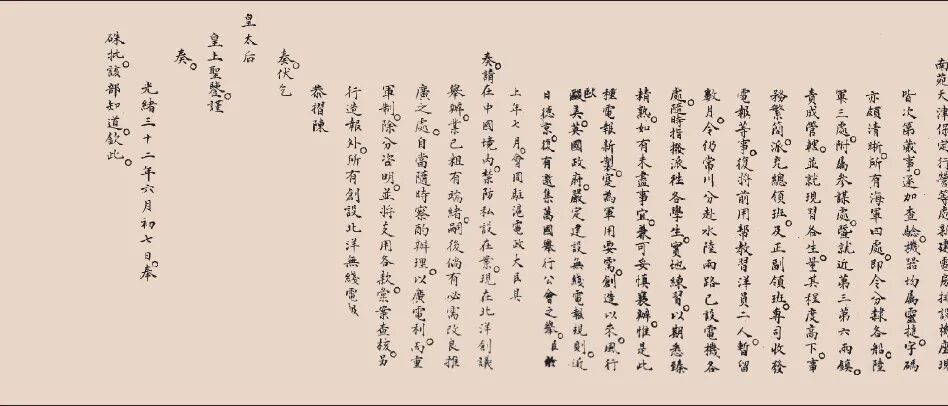 南苑天津保定行營等處新建電房排設機座現
皆次第蕆事遂加查驗機器均屬靈捷字碼
亦頗清晰所有海軍四處即令分隸各船陸
軍三處附屬參謀處暨就近第三第六兩鎮
責成管轄並就現習各生量其程度高下事
務繁簡派充總領班及正副領班專司收發
電報等事復將前用幫教習洋員二人暫留
數月令仍常川分赴水陸兩路已設電機各
處隨時指撥派往各學生實地練習以期悉臻
精熟如有未盡事宜兼可妥慎襄辦惟是此
種電報新製定為軍用要需創造以來風行
歐美英國政府嚴定建設無綫電報規則近
日德京復有邀集萬國舉行公會之舉臣於
上年七月會同駐滬電政大臣具
奏請在中國境內禁防私設在案現在北洋創議
舉辦業已粗有端緒嗣後倘有必需改良推
廣之處自當隨時察酌辦理以廣電利而重
軍制除分咨明並將支用各款彙案查核另
行造報外所有創設北洋無綫電報
恭摺陳
奏伏乞
皇太后
皇上聖鑒謹
奏
光緒三十二年六月初七日奉
硃批該部知道欽此